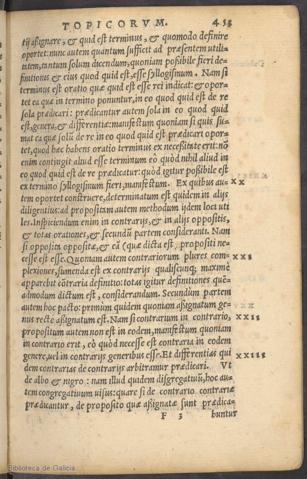 TOPICORVM. 453
tij aßignare, & quid est terminus, & quomodo definire
oportet: nunc autem quantum sufficit ad præsentem utili-
tatem, tantum solum dicendum, quoniam poßibile fieri de-
finitiones & eius quod quid est, esse syllogismum. Nam si
terminus est oratio quæ quid est esse rei indicat: & opor-
tet ea quæ in termino ponuntur, in eo quod quid est de re
sola prædicari: prædicantur autem sola in eo quod quid
est, genera, & differentiæ: manifestum quoniam si quis su-
mat ea quæ solū de re in eo quod quid est prædicari opor-
tet, quod hæc habens oratio terminus ex necessitate erit: nō
enim contingit aliud esse terminum eò quòd nihil aliud in
eo quod quid est de re prædicatur: quòd igitur poßibile est
ex termino syllogismum fieri, manifestum. Ex quibus au- XX
tem oportet construere, determinatum est quidem in alijs
diligentius: ad propositam autem methodum ijdem loci uti
les. Inspiciendum enim in contrarijs, & in alijs oppositis,
& totas orationes, & secundū partem consideranti. Nam
si opposita oppositæ, & eā (quæ dicta est) propositi ne-
cesse est esse. Quoniam autem contrariorum plures com- XXI
plexiones, sumenda est ex contrarijs qualiscunq; maximè
apparebit cōtraria definitio: totas igitur definitiones quē-
admodum dictum est, considerandum. Secundùm partem
autem hoc pacto: primùm quidem quoniam aßignatum ge-
nus rectè aßignatum est. Nam si contrarium in contrario, XXII
propositum autem non est in eodem, manifestum quoniam
in contrario erit, eò quòd necesse est contraria in eodem
genere, uel in contrarijs generibus esse. Et differentias qui XXIII
dem contrarias de contrarijs arbitramur prædicari. Vt
de albo & nigro: nam illud quidem disgregatiuū, hoc au-
tem congregatiuum uisus: quare si de contrario contrariæ
prædicantur, de proposito quæ aßignatæ sunt prædica-
F 3 buntur
Biblioteca de Galicia